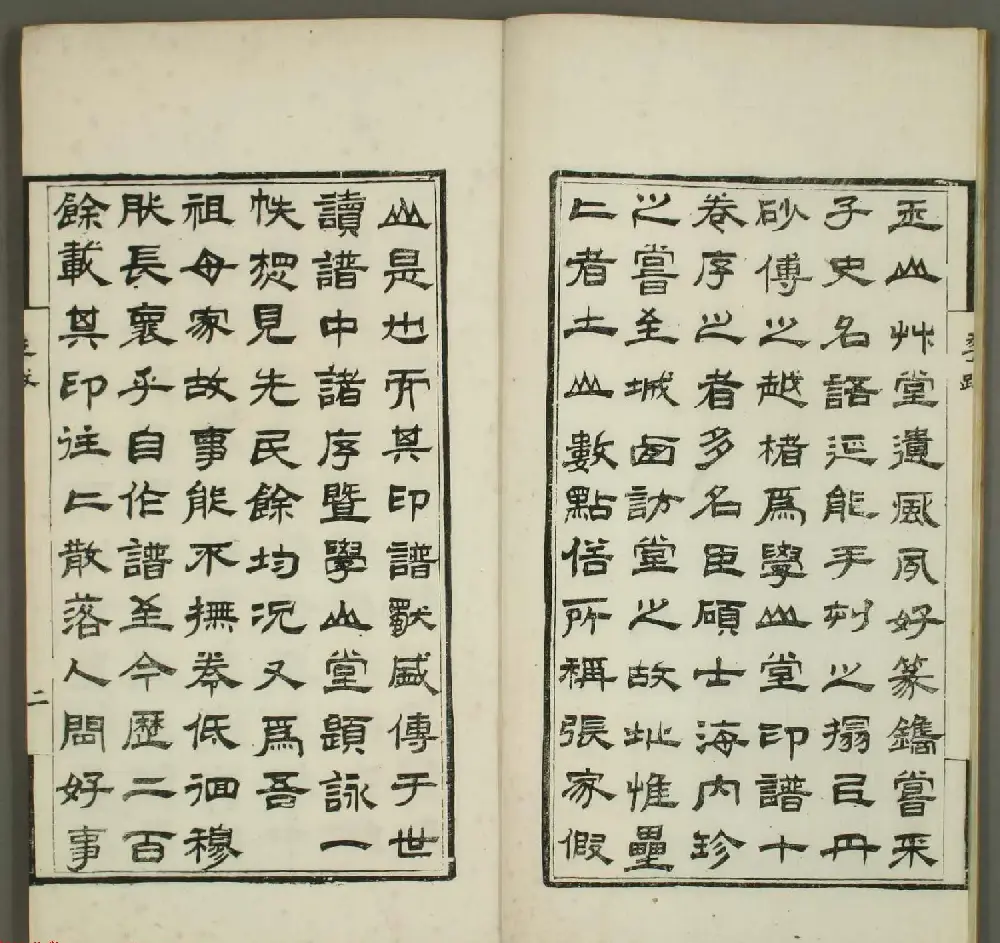 玉山艸堂遺風夙好篆鐫嘗采
子史名語延能手刻之搨㠯丹
砂傅之越楮爲學山堂印譜十
卷序之者多名臣碩士海內珍
之嘗至城西訪堂之故址惟壘
二者土山數點俗所稱張家假
山是也而其印譜猷盛傳于世
讀譜中諸序暨學山堂題詠一
帙想見先民餘均況又爲吾
祖母家故事能不撫卷低徊穆
肰長褱乎自作譜至今歷二百
餘載其印往二散落人間好事
二